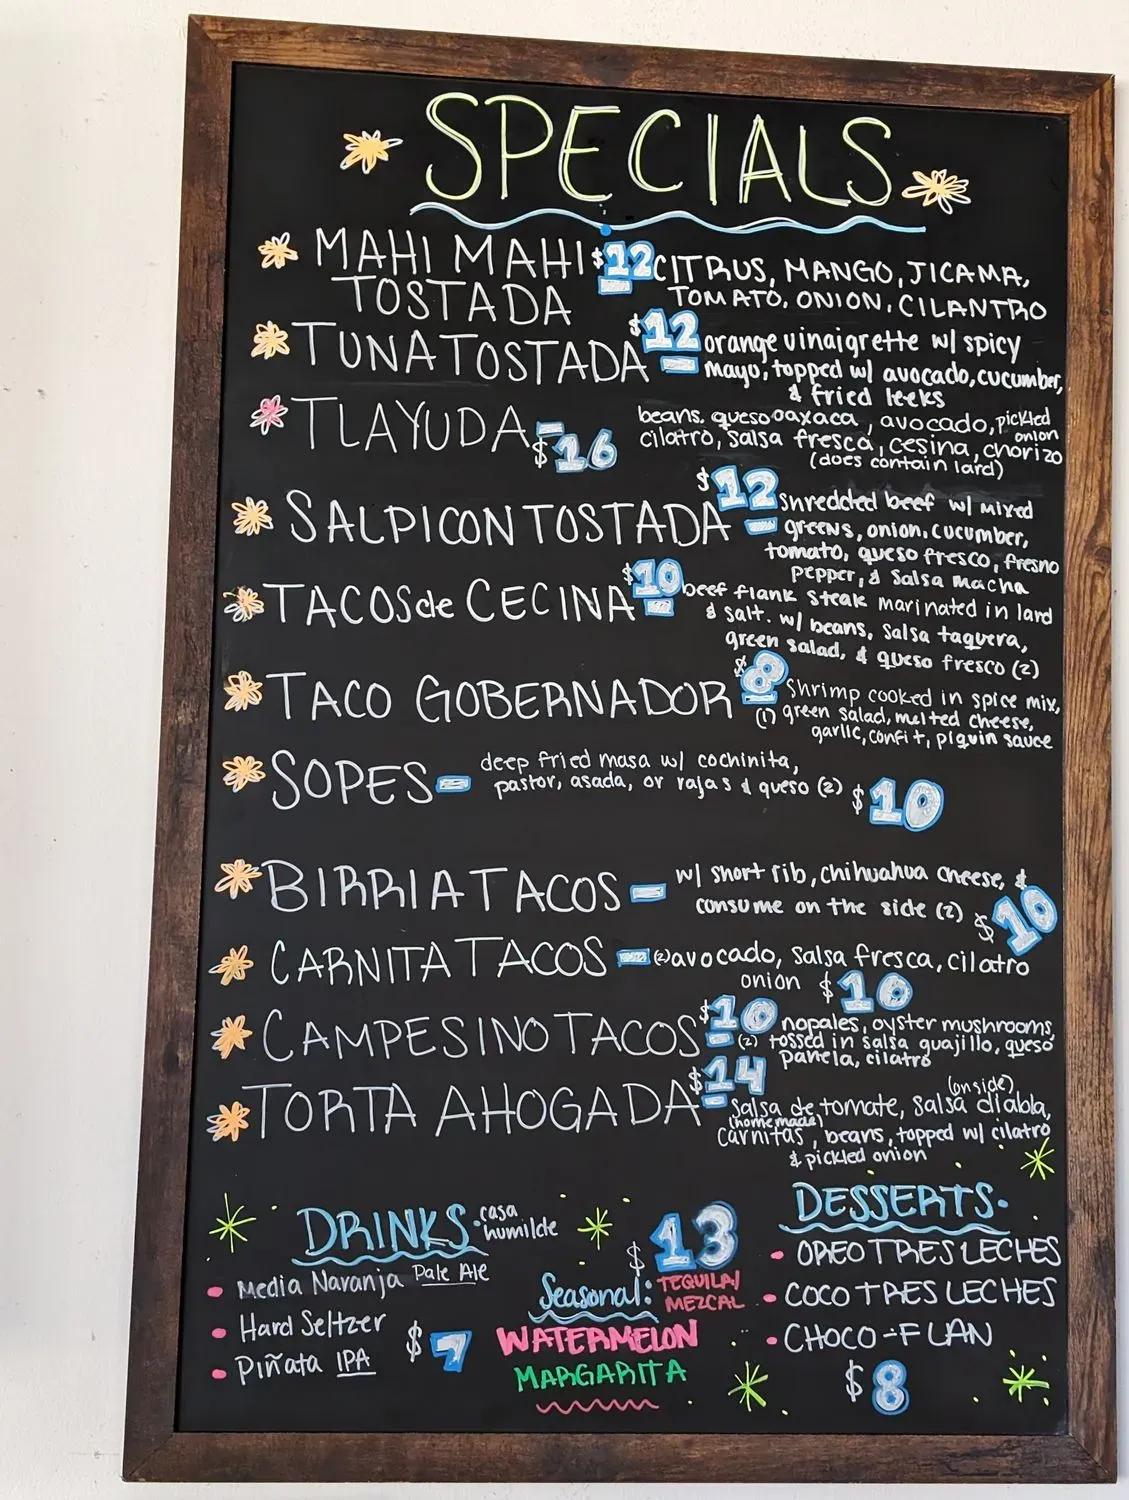 SPECIALS
MAHI MAHI $12 CITRUS, MANGO, JICAMA,
TOSTADA TOMATO, ONION, CILANTRO
TUNA TOSTADA $12 orange vinaigrette w/ spicy
mayo, topped w/ avocado, cucumber,
& fried leeks
TLAYUDA - $16 beans, queso oaxaca, avocado, pickled onion
cilatro, salsa fresca, cesina, chorizo
(does contain lard)
SALPICON TOSTADA $12 - Shredded beef w/ mixed
greens, onion, cucumber,
tomato, queso fresco, fresno
pepper, & salsa macha
TACOS de CECINA $10 - beef flank steak marinated in lard
& salt. w/ beans, salsa taquera,
green salad, & queso fresco (2)
TACO GOBERNADOR $8 - Shrimp cooked in spice mix,
(1) green salad, melted cheese,
garlic, confit, piquin sauce
SOPES - deep fried masa w/ cochinita,
pastor, asada, or rajas & queso (2) $10
BIRRIA TACOS - w/ short rib, chihuahua cheese, &
consume on the side (2) $10
CARNITA TACOS - (2) avocado, salsa fresca, cilatro
onion $10
CAMPESINO TACOS $10 - nopales, oyster mushrooms,
(2) tossed in salsa guajillo, queso
panela, cilatro
TORTA AHOGADA $14 - (on side)
Salsa de tomate, salsa diabla,
(homemade)
carnitas, beans, topped w/ cilatro
& pickled onion
DRINKS. casa humilde
Media Naranja Pale Ale
Hard Seltzer
Piñata IPA
$7
$13
Seasonal: TEQUILA/
MEZCAL
WATERMELON
MARGARITA
DESSERTS.
OREO TRES LECHES
COCO TRES LECHES
CHOCO-FLAN
$8